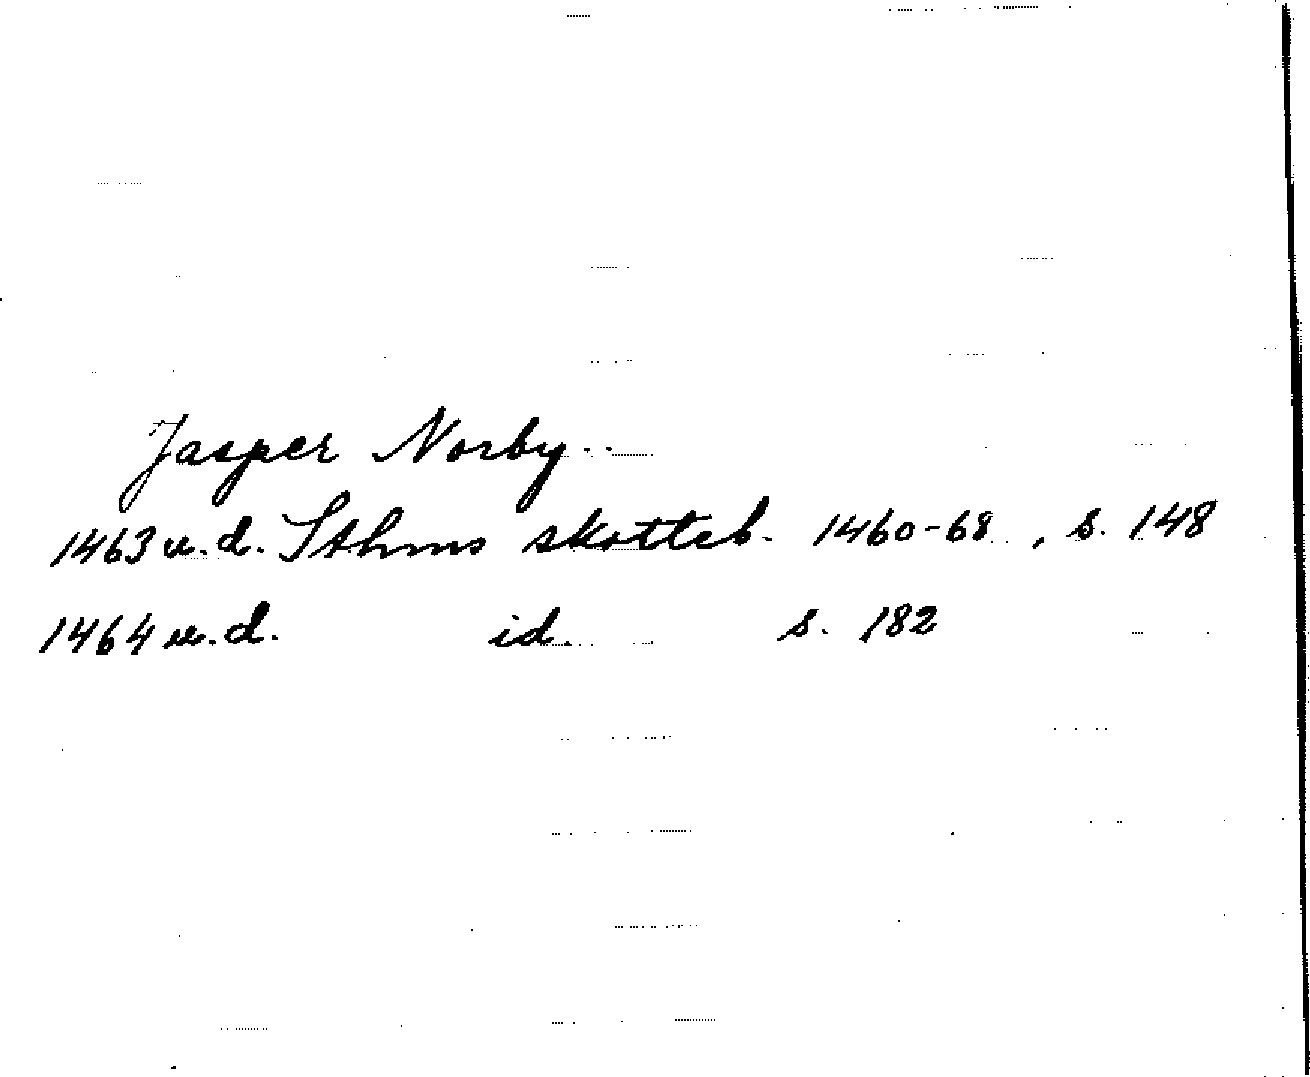 Jasper Norby
1463 u.d. Sthms skotteb. 1460-68, s. 148
1464 u.d. id. s. 182